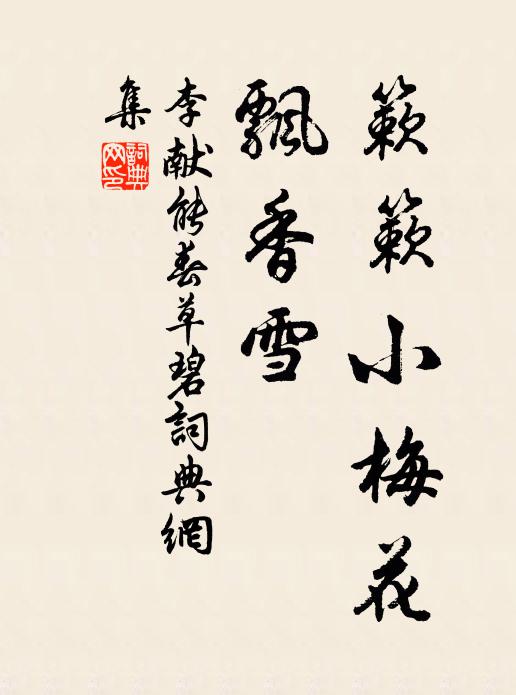 簌簌小梅花
飄香雪
李献能春草碧詞典網
集
詞典
网印